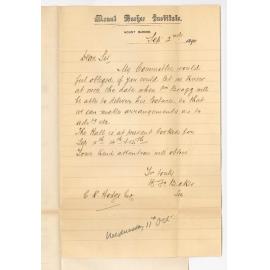 Mount Barker Institute.
MOUNT BARKER
Sep 2nd 1890
Dear Sir,
My Committee would
feel obliged if you would let us know
at once the date when Mr Bragg will
be able to deliver his lecture, so that
we can make arrangements as to
advt. etc.
The Hall is at present booked for
Sep 9th 10th & 15th
Your kind attention will oblige
Yr truly
Sec
C. R. Hodge Esq
Wednesday 1st Oct.